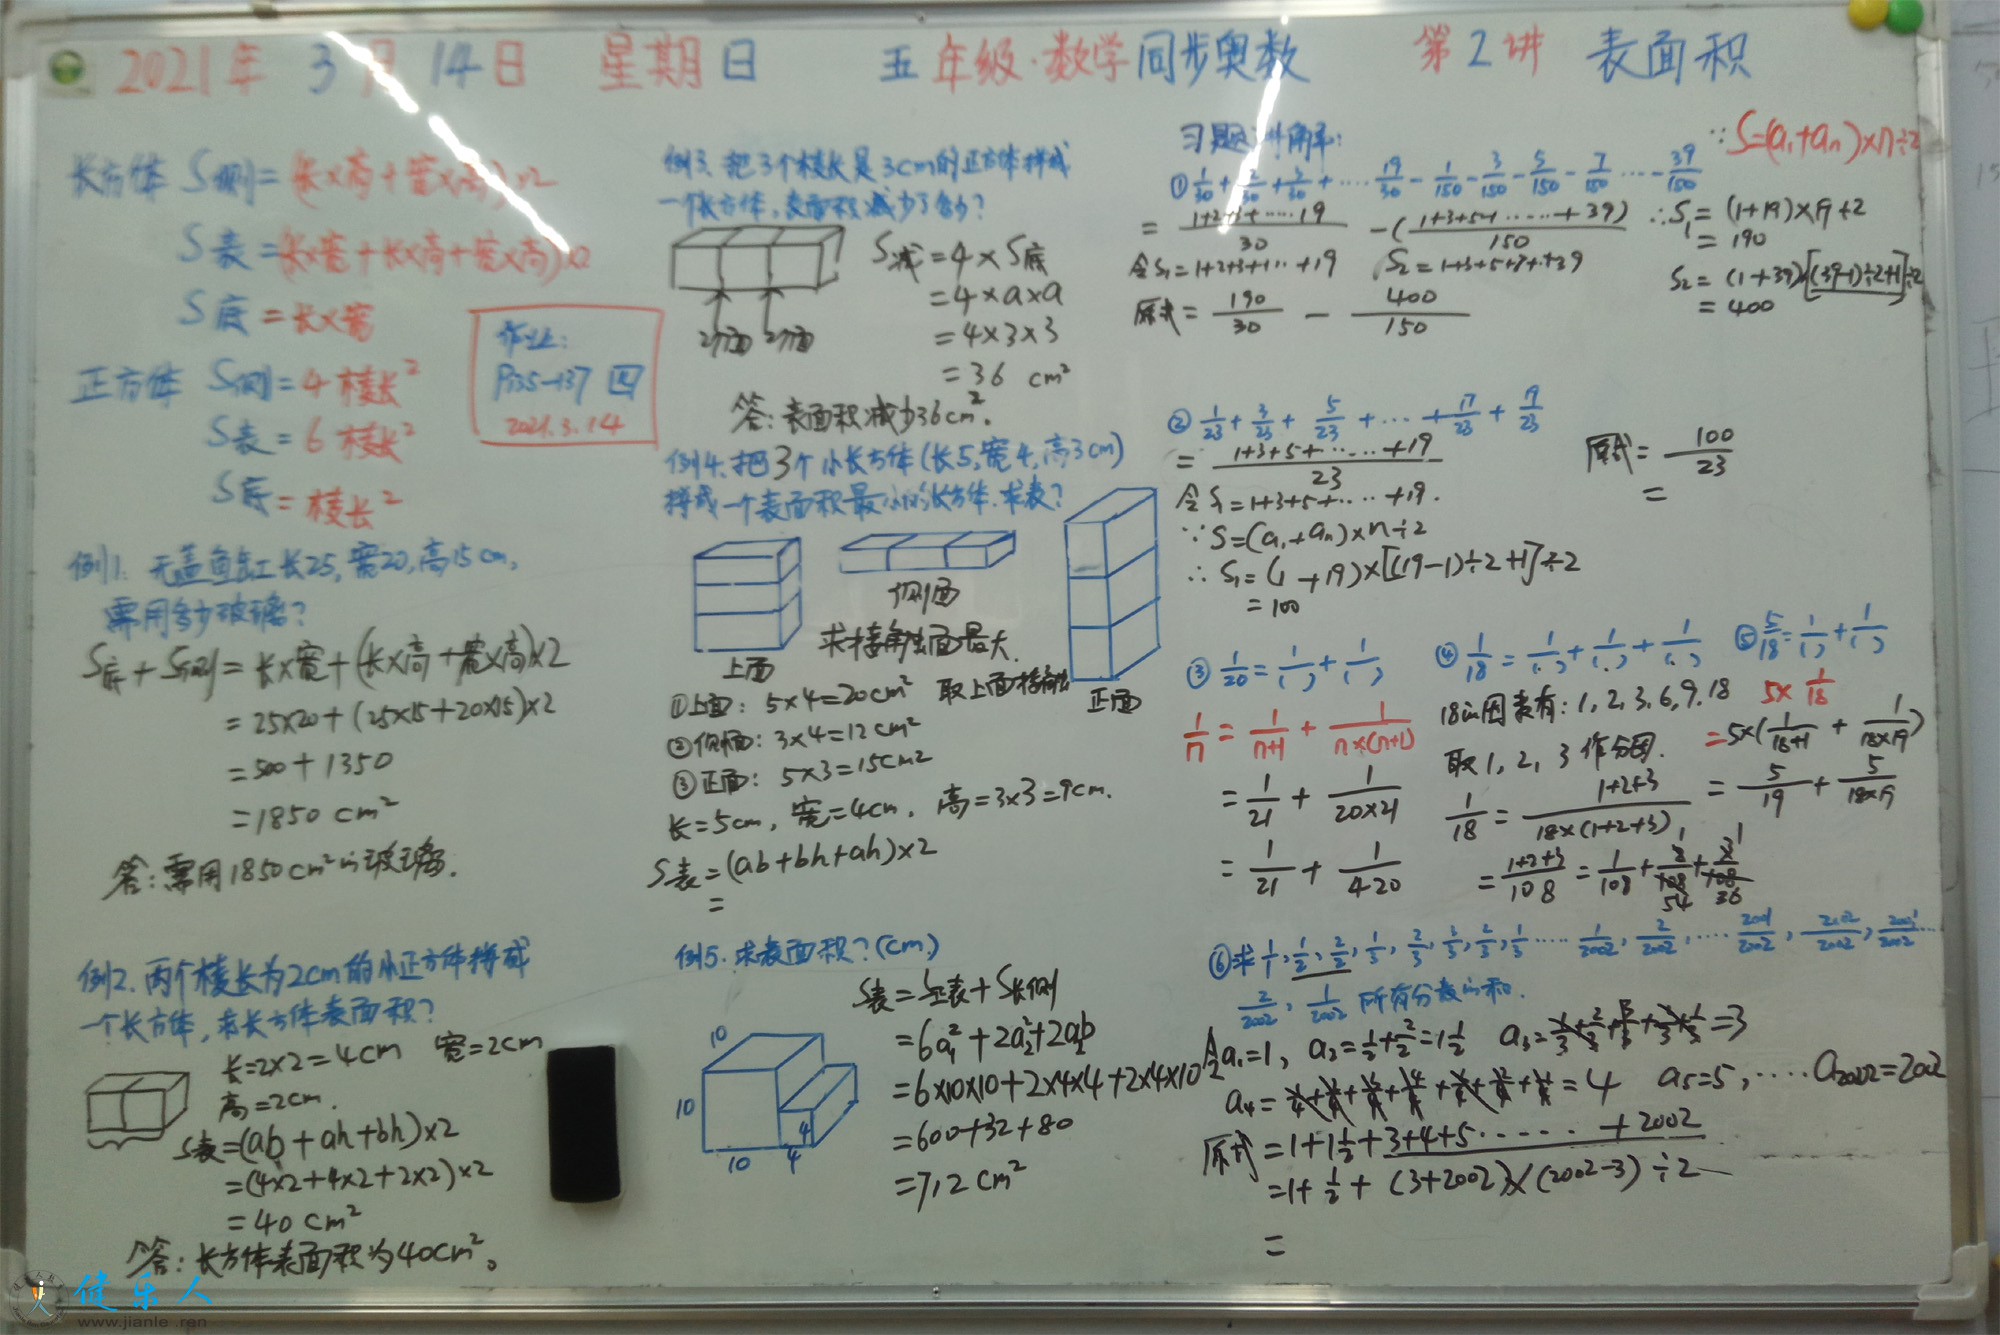 2021年 3月 14日 星期日 五年级·数学同步奥数 第2讲 表面积
长方体 S侧=(长×高+宽×高)×2
S表=(长×宽+长×高+宽×高)×2
S底=长×宽
正方体 S侧=4棱长²
S表=6棱长²
S底=棱长²
作业:
P135-137 四
2021.3.14
例1. 无盖鱼缸长25,宽20,高15cm,
需用多少玻璃?
S底+S侧=长×宽+(长×高+宽×高)×2
=25×20+(25×15+20×15)×2
=500+1350
=1850 cm²
答:需用1850cm²的玻璃.
例2. 两个棱长为2cm的小正方体拼成
一个长方体,求长方体表面积?
长=2×2=4cm 宽=2cm
高=2cm.
S表=(ab+ah+bh)×2
=(4×2+4×2+2×2)×2
=40 cm²
答:长方体表面积为40cm²。
例3. 把3个棱长是3cm的正方体拼成
一个长方体,表面积减少了多少?
2个面 2个面
S减=4×S底
=4×a×a
=4×3×3
=36 cm²
答:表面积减少36cm²。
例4. 把3个小长方体(长5,宽4,高3cm)
拼成一个表面积最小的长方体.求表?
上面
侧面
正面
求接触面最大.
①上面: 5×4=20cm² 取上面接触
②侧面: 3×4=12cm²
③正面: 5×3=15cm2
长=5cm, 宽=4cm, 高=3×3=9cm.
S表=(ab+bh+ah)×2
=
例5. 求表面积?(cm)
10
10
10
4
4
S表=S正表+S长侧
=6a₁²+2a₂²+2ab
=6×10×10+2×4×4+2×4×10
=600+32+80
=712 cm²
习题讲解:
①1/30+2/30+3/30+····19/30-1/150-3/150-5/150-7/150···-39/150
=(1+2+3+·····19)/30-(1+3+5+·····+39)/150
令S₁=1+2+3+1··+19 S₂=1+3+5+7+·+39
原式=190/30-400/150
∵S=(a₁+aₙ)×n÷2
∴S₁=(1+19)×19÷2
=190
S₂=(1+39)×[(39-1)÷2+1]÷2
=400
②1/23+3/23+5/23+···+17/23+19/23
=(1+3+5+·····+19)/23
令S₁=1+3+5+····+19.
∵S=(a₁+aₙ)×n÷2
∴S₁=(1+19)×[(19-1)÷2+1]÷2
=100
原式=100/23
=
③1/20=1/( )+1/( )
1/n=1/(n+1)+1/(n×(n+1))
=1/21+1/(20×21)
=1/21+1/420
④1/18=1/( )+1/( )+1/( )
18的因数有:1,2,3,6,9,18
取1,2,3作分子.
1/18=(1+2+3)/(18×(1+2+3))
=(1+2+3)/108=1/108+2/108+3/108
1 1
54 36
⑤5/18=1/( )+1/( )
5×1/18
=5×(1/(18+1)+1/(18×19))
=5/19+5/(18×19)
2/2002,1/2002所有分数的和.
令a₁=1, a₂=1/2+2/2=1 1/2
a₅=5,····a2002=2002
原式=1+1 1/2+3+4+5·····+2002
=1+1/2+(3+2002)×(2002-3)÷2
=
健乐人
www.jianle.ren